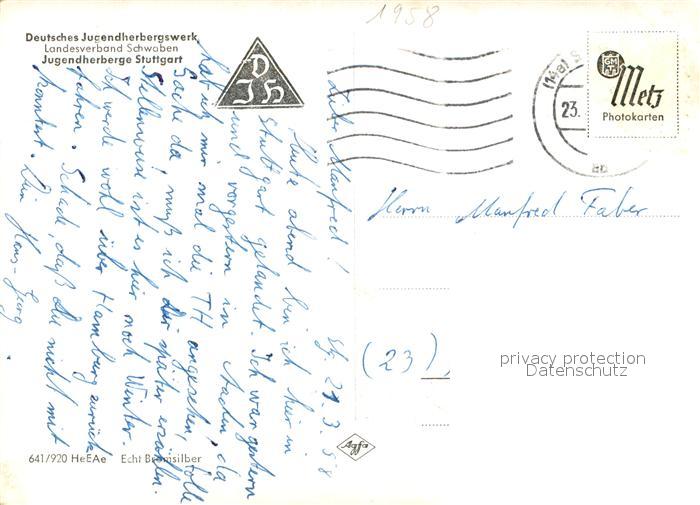 1958
Deutsches Jugendherbergswerk
Landesverband Schwaben
Jugendherberge Stuttgart
DJH
(14a) S
23.
GMM
Metz
Photokarten
Stg. 21.3.58
Lieber Manfred!
Heute abend bin ich hier in
Stuttgart gelandet. Ich war gestern
und vorgestern in Aachen, da
hab ich mir mal die TH angesehen, tolle
Sache da, muß ich dir später erzählen.
Stellenweise ist es hier noch Winter.
Ich werde wohl über Hamburg zurück
fahren. Schade, daß du nicht mit
konntest. Dein Hans-Georg.
Herrn Manfred Faber
(23)
privacy protection
Datenschutz
Agfa
641/920 HeEAe Echt Bromsilber